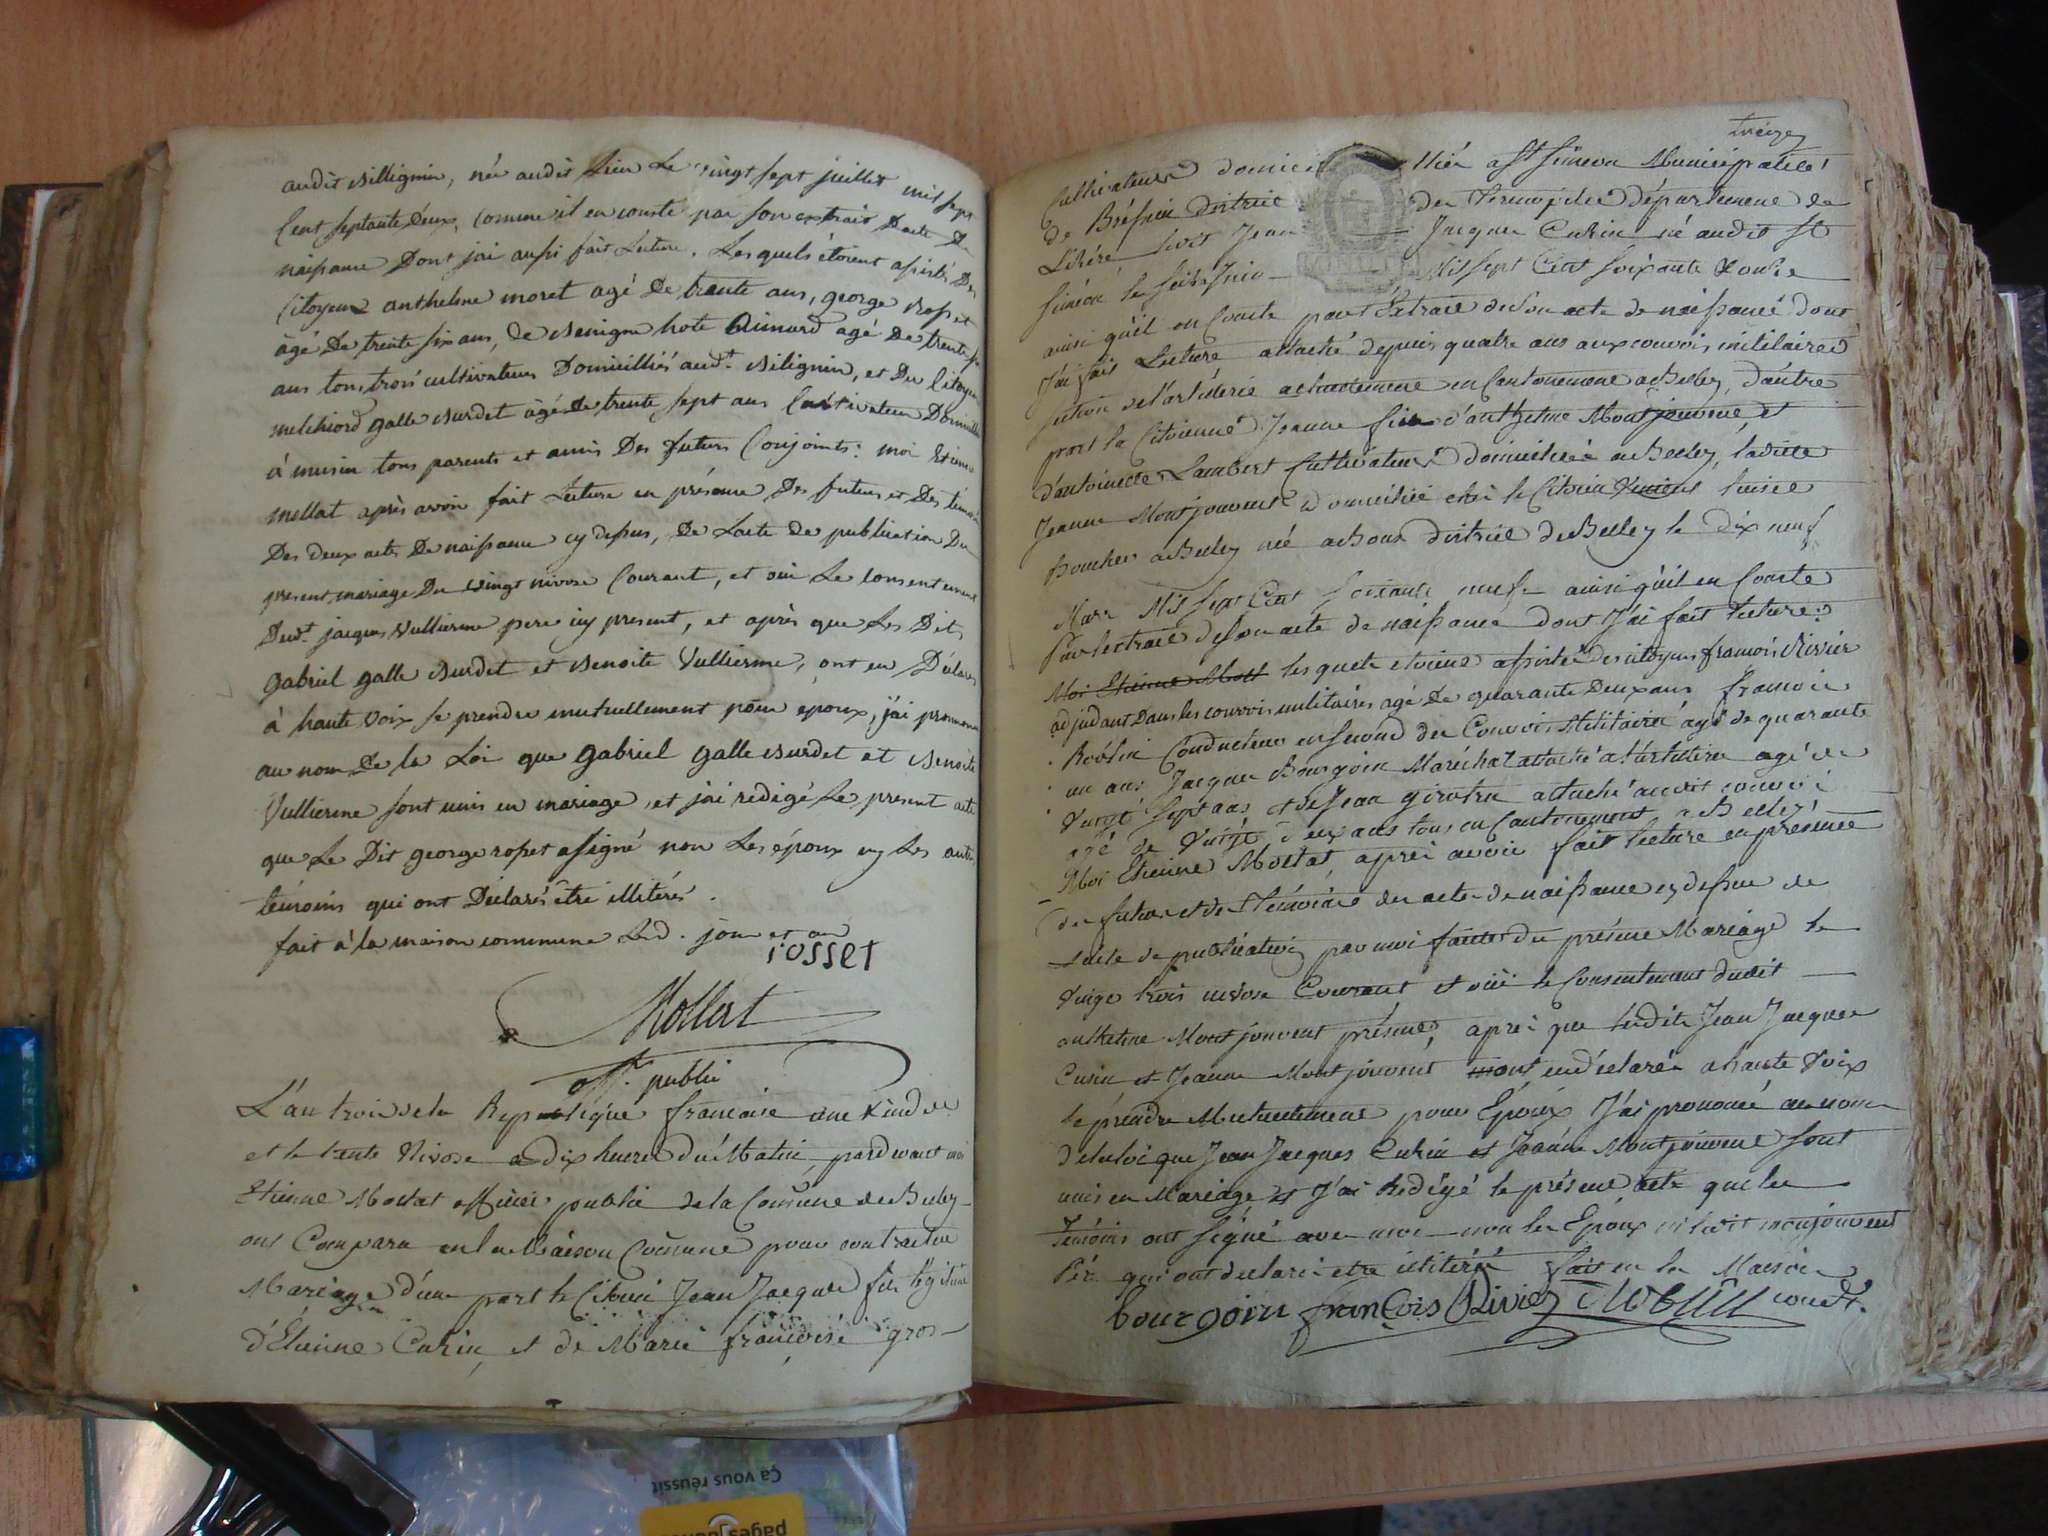 audit Billignin, née audit Lieu Le vingt sept juillet mil sept
Cent septante deux, Comme il en conste par son extrait Dacte De
naissance Dont jai aussi fait Lecture. Lesquels étoient assistés Des
Citoyens anthelme moret agé De trente ans, george rosset
agé De trente six ans, de Benigne hote Aimard agé De trente
ans tous trois cultivateurs Domiciliés audt. Bilignin, et Du Citoyen
melchiord galle Burdet agé de trente sept ans Cultivateur Domicilié
à musin tous parents et amis Des futurs Conjoints: moi Etienne
mollat après avoir fait Lecture en présence Des futurs et Des témoins
Des deux actes De naissance cy dessus, De Lacte de publication Du
present mariage Du vingt nivose Courant, et oui Le consentement
Dudt. jacques Vullierme pere icy present, et après que Les Dits
gabriel galle Burdet et Benoite Vullierme, ont eu Déclaré
à haute voix se prendre mutuellement pour époux, j'ai prononcé
au nom De la Loi que gabriel galle Burdet et Benoite
Vullierme sont unis en mariage, et j'ai redigé Le present acte
que Le Dit george rosset a signé non Les époux ny Les autres
témoins qui ont Déclarés être illitérés.
fait à la maison commune Led. jour et an
rosset
Mollat
off. public
L'an trois de la Republique francaise une & indivle
et le trente Nivose a dix heures du Matin, pardevant moi
Etienne Mollat officier public de la Commune de Belley
ont Comparu en la Maison Commune pour contracter
Mariage d'une part le Citoien Jean Jacques fils légitime
d'Etienne Cusin, et de Marie françoise gros
treize
Cultivateurs domicilliés a St Simeon Municipalité
de Bressieu district des Termopiles département de
Lisère ledit Jean Jacques Cusin né audit St
Siméon le seize Juin Mil sept Cent soixante douze
ainsi qu'il en Conste par l'Extrait de son acte de naissance dont
J'ai fait Lecture attaché depuis quatre ans aux convois militaires
section de l'artilerie actuellement en Cantonement a Belley, d'autre
part la Citoienne Jeanne fille d'anthelme Montjouvent et
d'antoinette Lambert Cultivateurs domiciliés a Belley, ladite
Jeanne Montjouvent domiciliée chés le Citoien
boucher a Belley née a Bons district de Belley le dix neuf
Mars Mil sept Cent soixante neuf ainsi qu'il en Conste
Par lextrait de son acte de naissance dont J'ai fait lecture
Moi Etienne Moll lesquels etoient assistés des citoyens françois Rivier
adjudant Dans les convois militaires agé De quarante Deux ans françois
Roblin Conducteur en second des Convois Militaires agé de quarante
un ans Jacques Bourgoin Maréchal attaché a l'artilerie agé de
vingt sept ans et de Jean girotru attaché audit convoi
agé de vingt deux ans tous en Cantonement a Belley
Moi Etienne Mollat, après avoir fait lecture en présence
des futurs et des témoins des actes de naissance cy dessus de
l'acte de publication par moi faite du présent Mariage le
vingt trois nivose Courant et oüi le Consentement dudit
anthelme Montjouvent présent, après que lesdits Jean Jacques
Cusin et Jeanne Montjouvent m'ont eu déclaré a haute voix
se prendre Mutuellement pour Epoux J'ai prononcé au nom
de la loi que Jean Jacques Cusin et Jeanne Montjouvent sont
unis en Mariage et J'ai Redigé le présent acte que les
Témoins ont signé avec moi non les Epoux ni ledit monjouvent
Père qui ont declaré etre illitérés fait en la Maison
bourgoin françois Rivier Roblin comte.
Ça vous réussit
pages